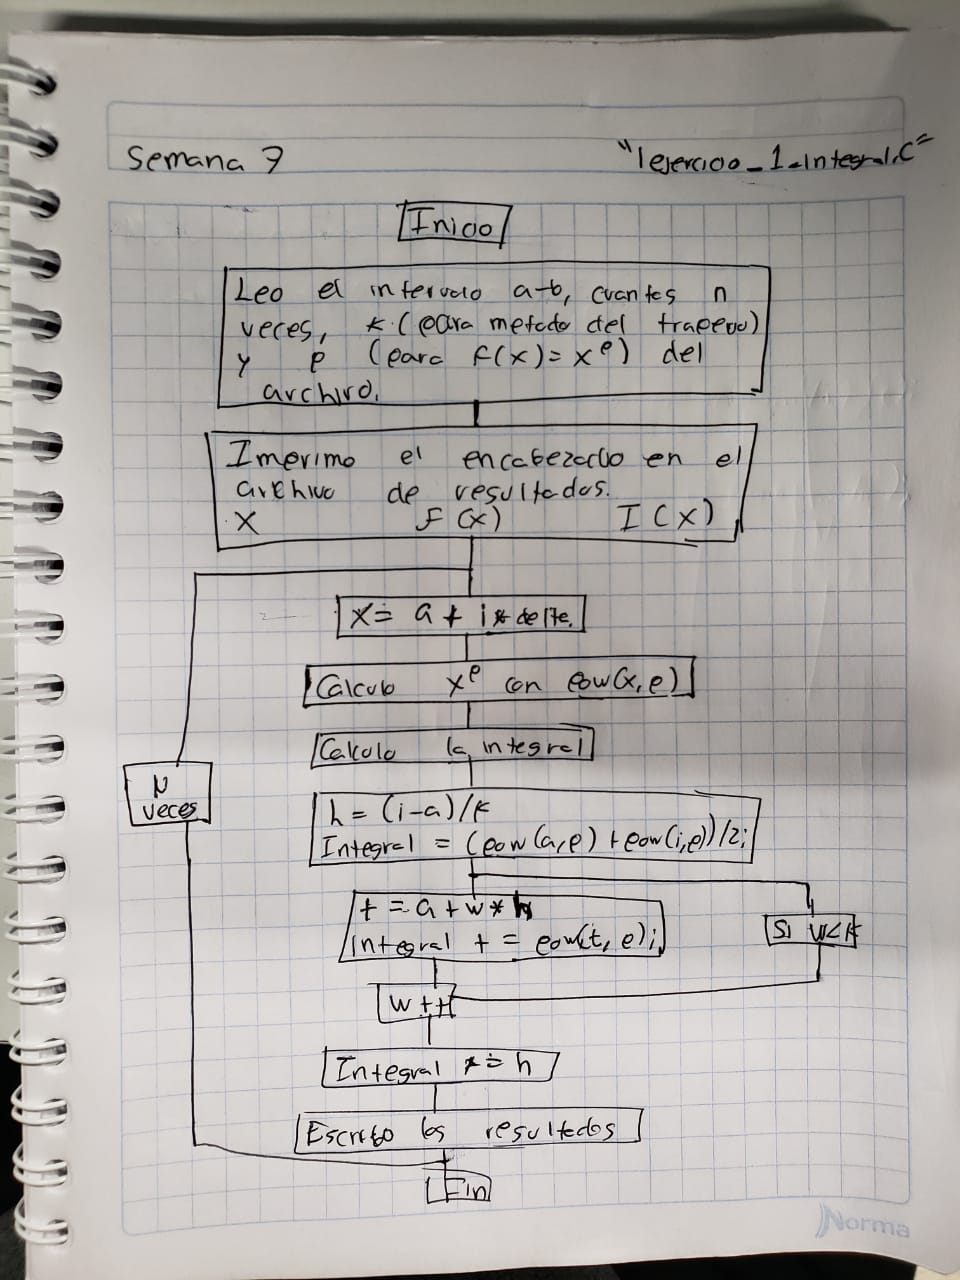 Semana 7
"1ejercicio_1_integral.c"
Inicio
Leo el intervalo a-b, cuantas n
veces, k (para metodo del trapecio)
y p (para f(x)=x^p) del
archivo.
Imprimo el encabezado en el
archivo de resultados.
x f(x) I(x)
x= a + i*delta.
Calculo x^p con pow(x,p)
Calculo la integral
N
veces
h = (i-a)/k
Integral = (pow(a,p) + pow(i,p))/2;
t = a + w * h
Integral += pow(t, p);
Si w<k
w++
Integral *= h
Escribo los resultados
Fin
Norma